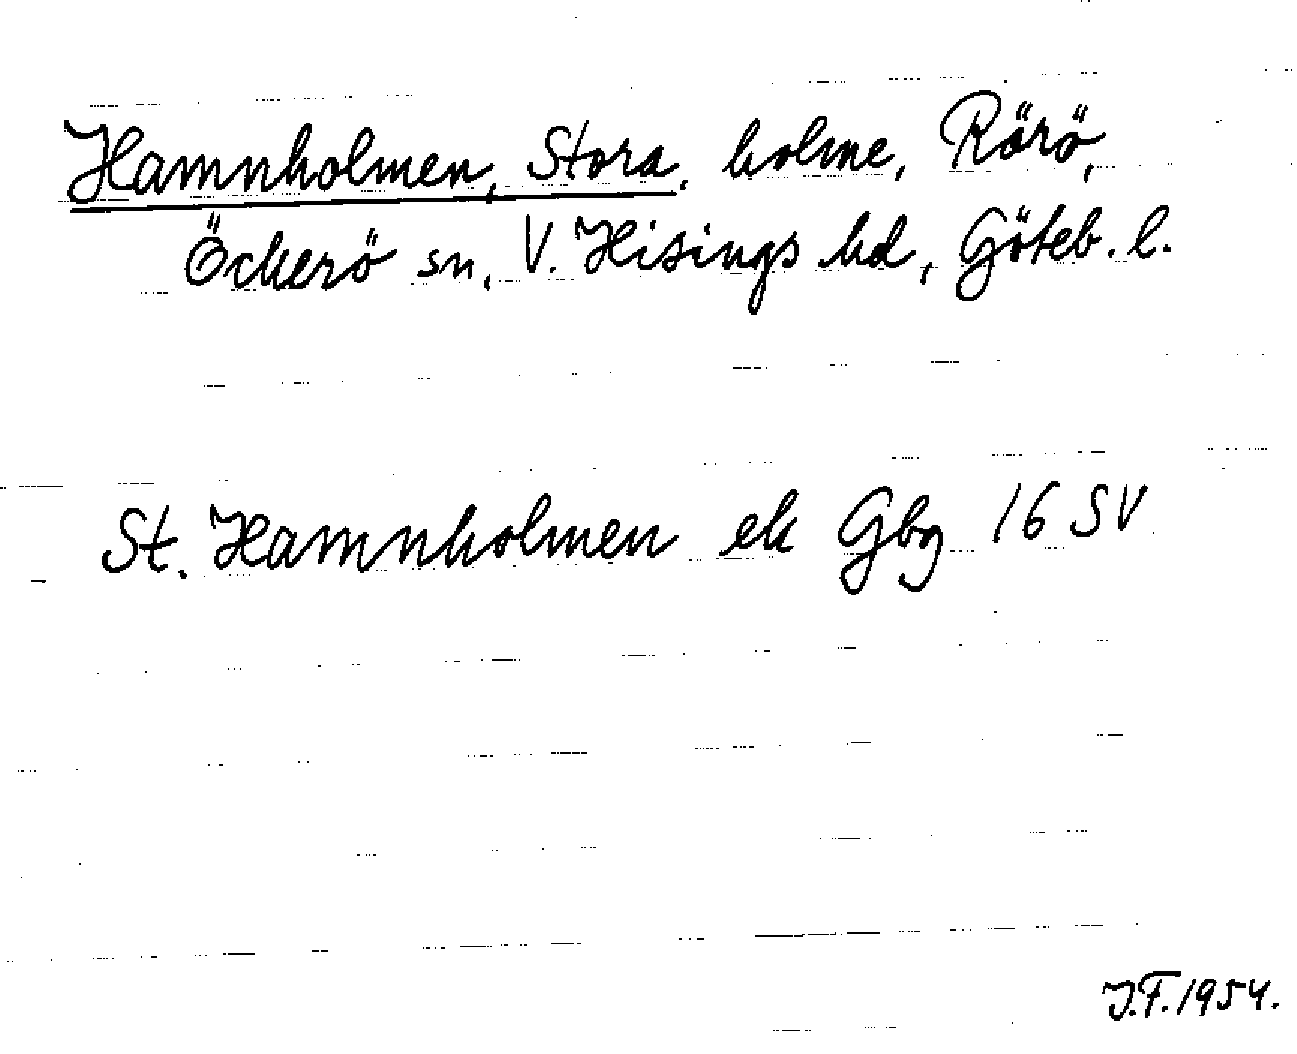 Hamnholmen, Stora, holme, Rörö,
Öckerö sn, V. Hisings hd, Göteb. l.
St. Hamnholmen ek Gbg 16 SV
J.F. 1954.